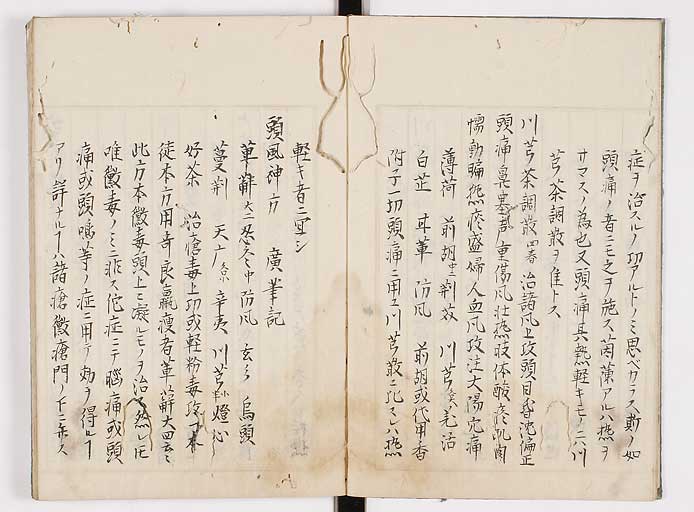 症ヲ治スルノ功アルトノミ思ベカラス斯ノ如
頭痛ノ音ニモ之ヲ施ス菌蔯アルハ熱ヲ
サマスノ為也又頭痛其熱軽キモノニハ川
芎茶調散ヲ佳トス
川芎茶調散 治諸風上攻頭目昏沈偏正
頭痛鼻塞 重傷風壮熱肢体酸疼肌肉
蠕動 熱痰盛婦人血風攻注太陽穴痛
薄荷 前胡 荊芥 川芎 羌活
白芷 甘草 防風 前胡或代用香
附子一切頭痛ニ用ユ川芎散ニ比スレハ熱
軽キ者ニ宜シ
頭風神方 廣筆記
萆薢 忍冬 防風 玄参 烏頭
蔓荊 天广 辛夷 川芎 燈心
好茶 治瘡毒上功或軽粉毒
徒本方用奇良羸痩者萆薢大四玄
此方本黴毒頭上ニ凝ルモノヲ治 然レ𪜈
唯黴毒ノミニ非ス佗症ニテ脳痛或頭
痛或頭鳴等ノ症ニ用テ効ヲ得ル
アリ詳ナル ハ諸瘡黴瘡門ノ下ニ弁ス